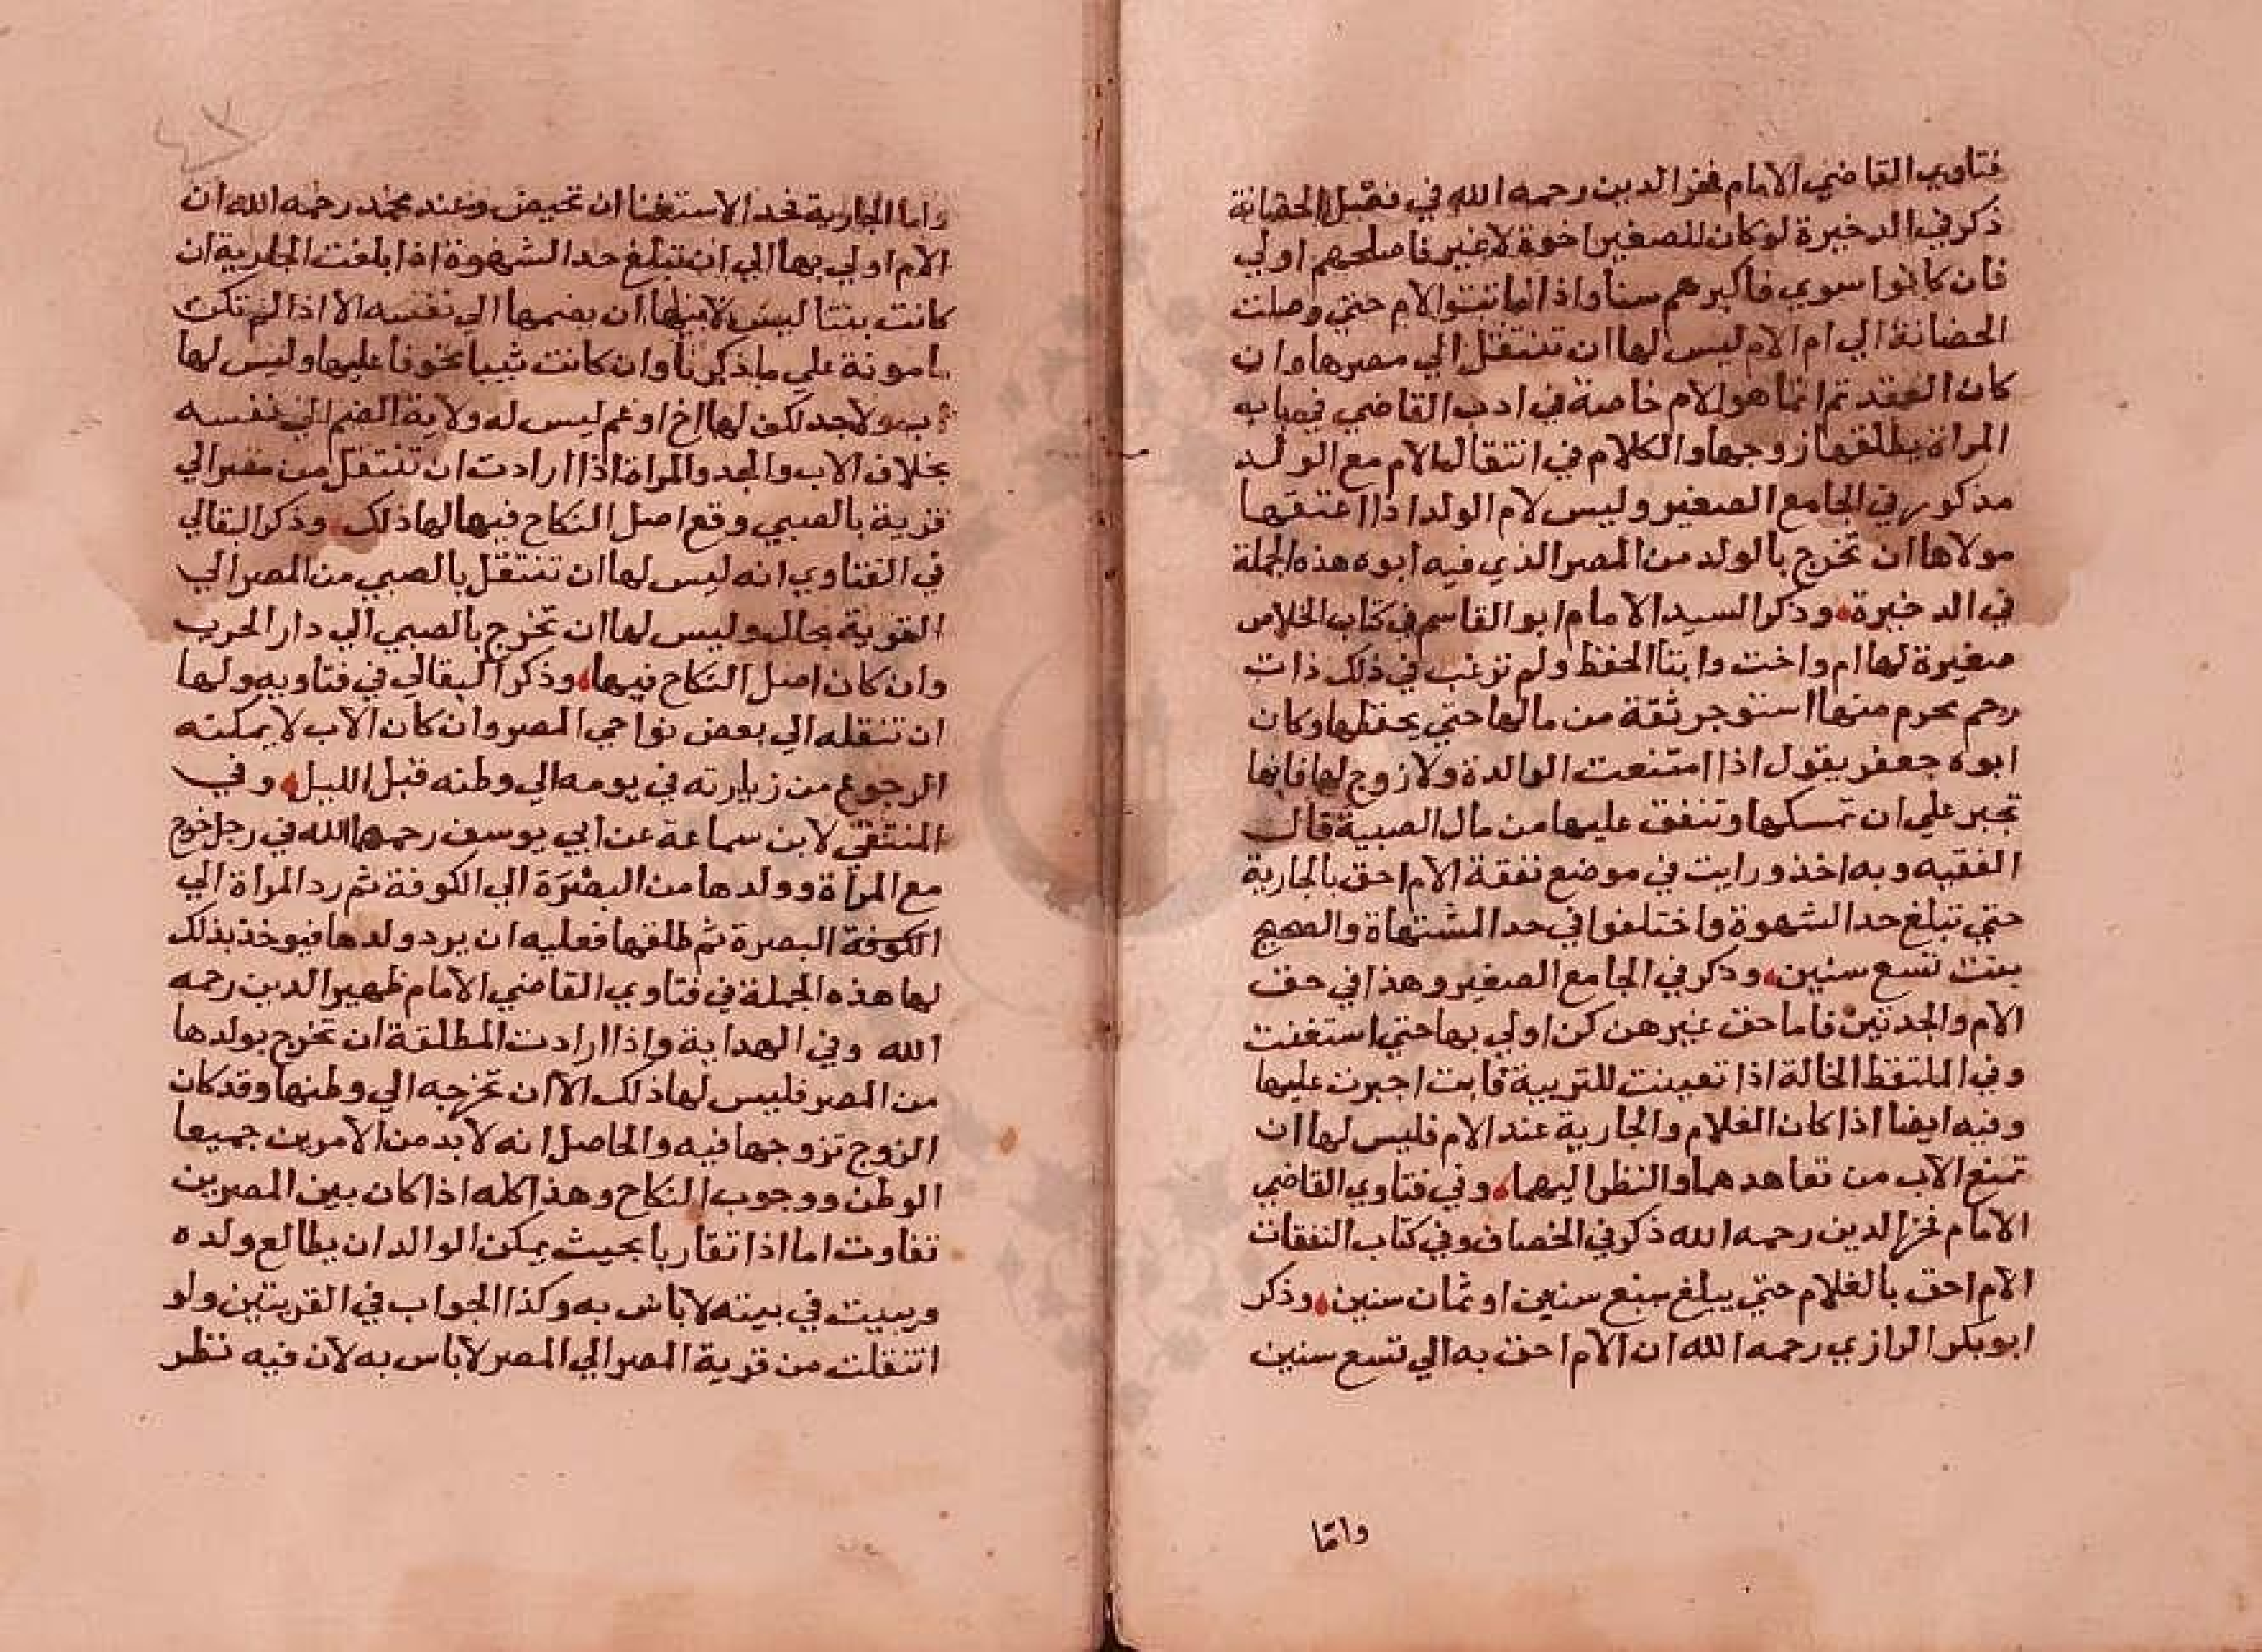 فتاوي القاضي الامام فخر الدين رحمه الله في فصل الحضانة
ذكر في الدخيرة لو كان للصغير اخوة لا غير فاصلحهم اولي
فان كانوا سوي فاكبرهم سنا واذا ماتت الام حتي وصلت
الحضانة الي ام الام ليس لها ان تنتقل الي مصرها وان
كان العقد تم انما هو الام خاصة في ادب القاضي في باب
المراة يطلقها زوجها والكلام في انتقال الام مع الولد
مذكور في الجامع الصغير وليس لام الولد اذا اعتقها
مولاها ان تخرج بالولد من المصر الذي فيه ابوه هذه الجملة
في الدخيرة وذكر السيد الامام ابو القاسم في كتاب الخلاص
صغيرة لها ام واخت وابتا الحفظ ولم ترغب في ذلك ذات
رحم محرم منها استوجر ثقة من مالها حتي يحفظها وكان
ابوه جعفر يقول اذا امتنعت الوالدة ولا زوج لها فانها
تجبر علي ان تمسكها وتنفق عليها من مال الصبية قال
الفقيه وبه اخذ ورايت في موضع نفقة الام احق بالجارية
حتي تبلغ حد الشهوة واختلفوا في حد المشتهاة والصحيح
بنت تسع سنين وذكر في الجامع الصغير وهذا في حق
الام والجدتين فاما حق غيرهن كن اولي بها حتي استغنت
وفي الملتقط الخالة اذا تعينت للتربية فابت اجبرت عليها
وفيه ايضا اذا كان الغلام والجارية عند الام فليس لها ان
تمنع الاب من تعاهدهما والنظر اليهما وفي فتاوي القاضي
الامام فخر الدين رحمه الله ذكر في الخصاف وفي كتاب النفقات
الام احق بالغلام حتي يبلغ سبع سنين او ثمان سنين وذكر
ابو بكر الرازي رحمه الله ان الام احق به الي تسع سنين
واما
واما الجارية فحد الاستغنا ان تحيض وعند محمد رحمه الله ان
الام اولي بها الي ان تبلغ حد الشهوة اذا بلغت الجارية ان
كانت بنتا ليس لابيها ان يضمها الي نفسه الا اذا لم تكن
مامونة علي ما ذكرنا وان كانت ثيبا مخوفا عليها وليس لها
اب ولا جد لكن لها اخ او عم ليس له ولاية الضم الي نفسه
بخلاف الاب والجد والمراة اذا ارادت ان تنتقل من مصر الي
قرية بالصبي وقع اصل النكاح فيها لها ذلك وذكر البقالي
في الفتاوي انه ليس لها ان تنتقل بالصبي من المصر الي
القرية بحال وليس لها ان تخرج بالصبي الي دار الحرب
وان كان اصل النكاح فيها وذكر البقالي في فتاويه ولها
ان تنقله الي بعض نواحي المصر وان كان الاب لا يمكنه
الرجوع من زيارته في يومه الي وطنه قبل الليل وفي
المنتقي لابن سماعة عن ابي يوسف رحمهما الله في رجل خرج
مع المراة وولدها من البصرة الي الكوفة ثم رد المراة الي
الكوفة البصرة ثم طلقها فعليه ان يرد ولدها فيوخذ بذلك
لها هذه الجملة في فتاوي القاضي الامام ظهير الدين رحمه
الله وفي الهداية واذا ارادت المطلقة ان تخرج بولدها
من المصر فليس لها ذلك الا ان تخرجه الي وطنها وقد كان
الزوج تزوجها فيه والحاصل انه لا بد من الامرين جميعا
الوطن ووجوب النكاح وهذا كله اذا كان بين المصرين
تفاوت اما اذا تقاربا بحيث يمكن الوالد ان يطالع ولده
ويبيت في بيته لا باس به وكذا الجواب في القريتين ولو
انتقلت من قرية المصر الي المصر لا باس به لان فيه نظر